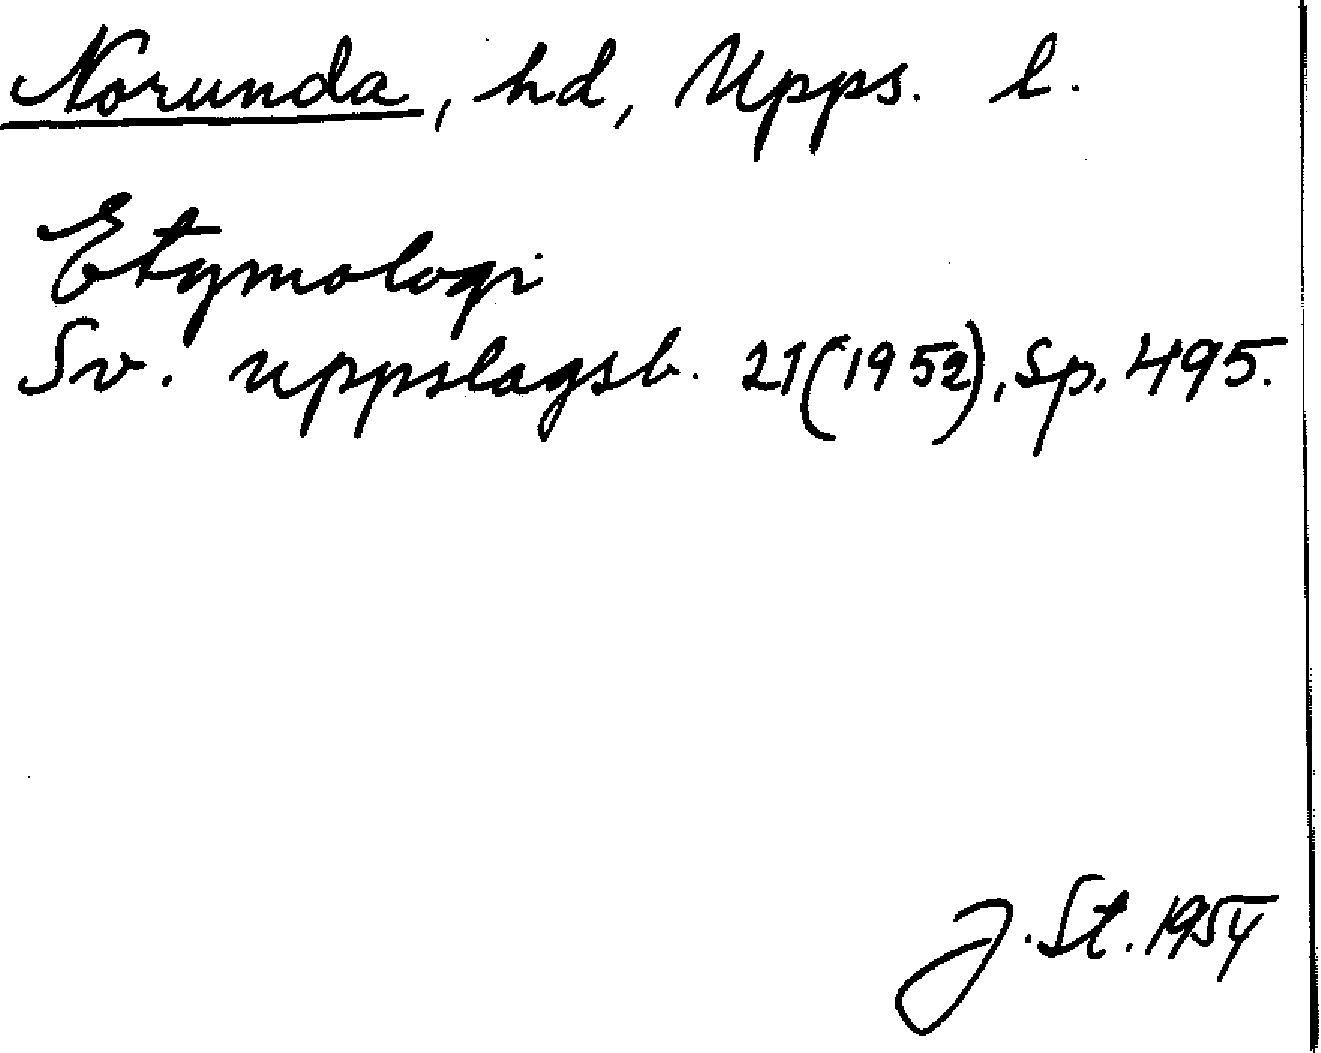 Norunda, hd, Upps. l.
Etymologi
Sv. uppslagsb. 21(1952), Sp. 495.
J. St. 1954